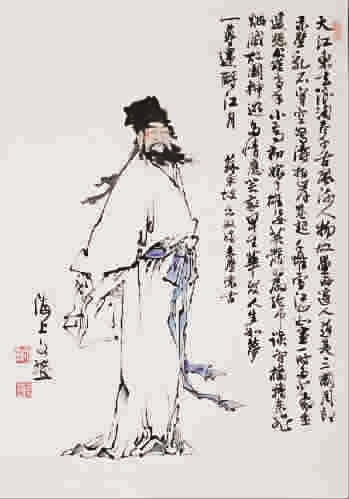 大江東去浪淘盡千古風流人物故壘西邊人道是三國周郎
赤壁亂石穿空驚濤拍岸卷起千堆雪江山如畫一時多少豪傑
遙想公瑾當年小喬初嫁了雄姿英發羽扇綸巾談笑間檣櫓灰飛
煙滅故國神遊多情應笑我早生華髮人生如夢
一尊還酹江月
蘇東坡念奴嬌赤壁懷古
海上